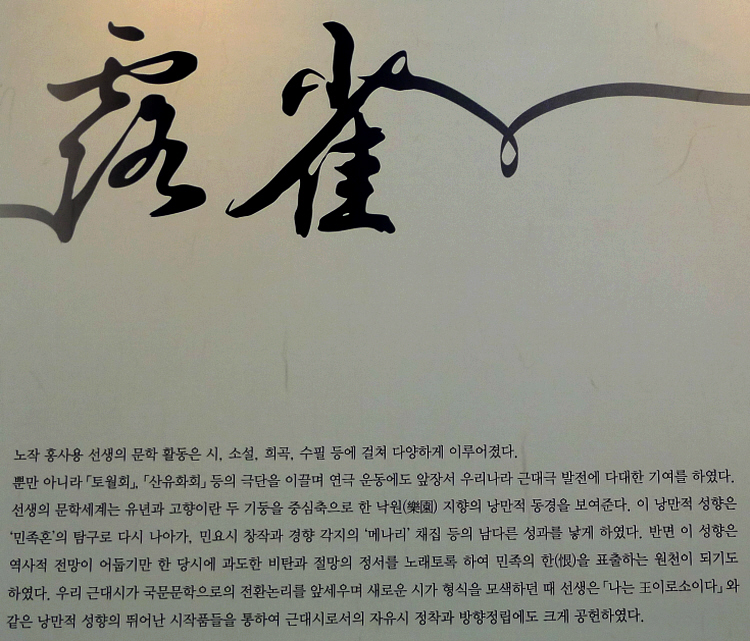 露雀
노작 홍사용 선생의 문학 활동은 시, 소설, 희곡, 수필 등에 걸쳐 다양하게 이루어졌다.
뿐만 아니라 「토월회」, 「산유화회」 등의 극단을 이끌며 연극 운동에도 앞장서 우리나라 근대극 발전에 다대한 기여를 하였다.
선생의 문학세계는 유년과 고향이란 두 기둥을 중심축으로 한 낙원(樂園) 지향의 낭만적 동경을 보여준다. 이 낭만적 성향은
'민족혼'의 탐구로 다시 나아가, 민요시 창작과 경향 각지의 '메나리' 채집 등의 남다른 성과를 낳게 하였다. 반면 이 성향은
역사적 전망이 어둡기만 한 당시에 과도한 비탄과 절망의 정서를 노래토록 하여 민족의 한(恨)을 표출하는 원천이 되기도
하였다. 우리 근대시가 국문문학으로의 전환논리를 앞세우며 새로운 시가 형식을 모색하던 때 선생은 「나는 王이로소이다」와
같은 낭만적 성향의 뛰어난 시작품들을 통하여 근대시로서의 자유시 정착과 방향정립에도 크게 공헌하였다.